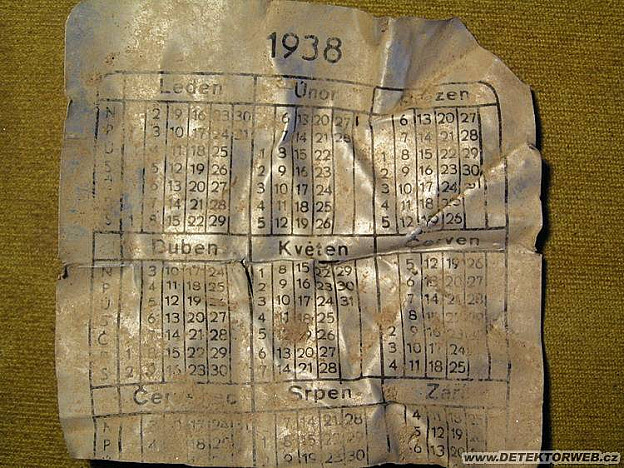 1938
Leden Únor Březen
N 2 9 16 23 30 6 13 20 27 6 13 20 27
P 3 10 17 24 31 7 14 21 28 7 14 21 28
Ú 4 11 18 25 1 8 15 22 1 8 15 22
S 5 12 19 26 2 9 16 23 2 9 16 23 30
6 13 20 27 3 10 17 24 3 10 17 24 31
7 14 21 28 4 11 18 25 4 11 18 25
S 1 8 15 22 29 5 12 19 26 5 12 19 26
Duben Květen Červen
N 3 10 17 24 1 8 15 22 29 5 12 19 26
P 4 11 18 25 2 9 16 23 30 6 13 20 27
Ú 5 12 19 26 3 10 17 24 31 7 14 21 28
S 6 13 20 27 4 11 18 25 8 15 22
Č 7 14 21 28 5 12 19 26 2 9 16 23
P 1 8 15 22 29 6 13 20 27 3 10 17 24
S 2 9 16 23 30 7 14 21 28 4 11 18 25
Červenec Srpen Září
N 3 10 17 24 7 14 21 28 4 11 18
P 4 18 1 8 15 22 29 5 12 19
9 16 23 30 6 13 20
www.DETEKTORWEB.cz